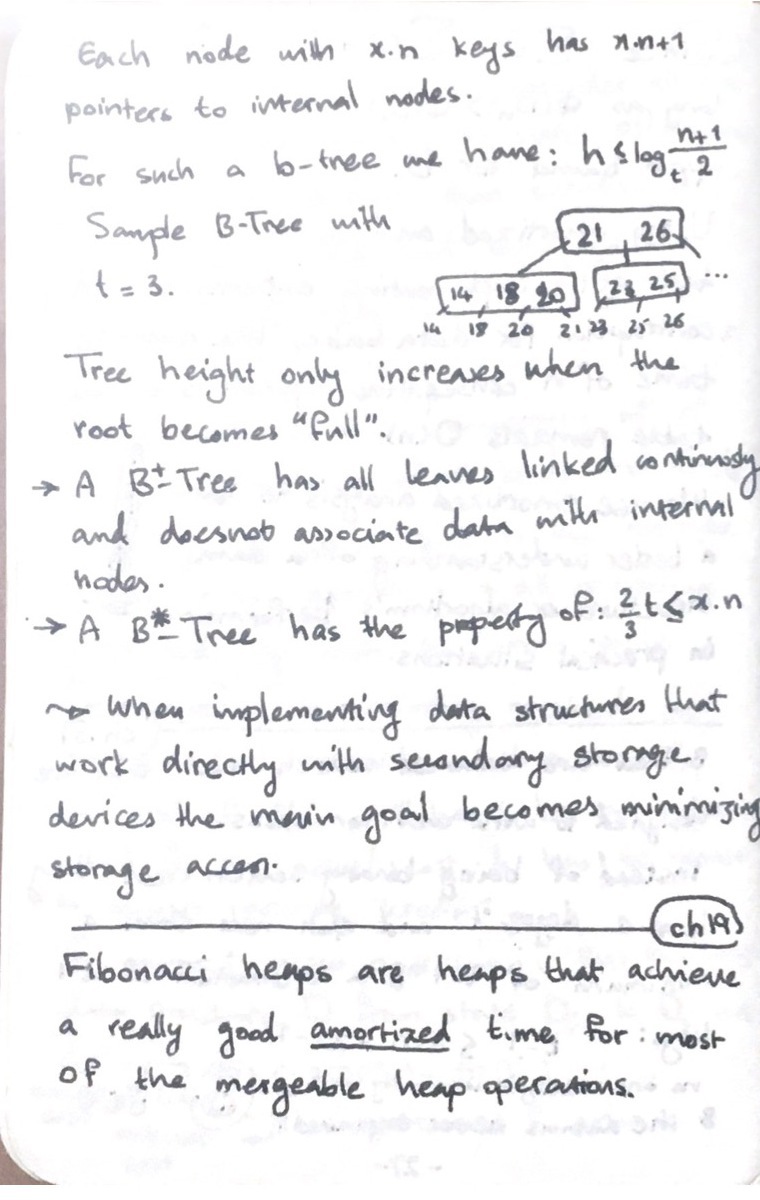 Each node with x.n keys has x.n+1
pointers to internal nodes.
For such a b-tree we have: h ≤ log_t (n+1)/2
Sample B-Tree with
t = 3.
21 26
14 18 20
23 25
...
14 18 20 21 23 25 26
Tree height only increases when the
root becomes "full".
→ A B+-Tree has all leaves linked continuosly
and doesnot associate data with internal
nodes.
→ A B*-Tree has the property of: 2/3 t ≤ x.n
~> When implementing data structures that
work directly with secondary storage
devices the main goal becomes minimizing
storage access.
ch 19
Fibonacci heaps are heaps that achieve
a really good amortized time for most
of the mergeable heap operations.